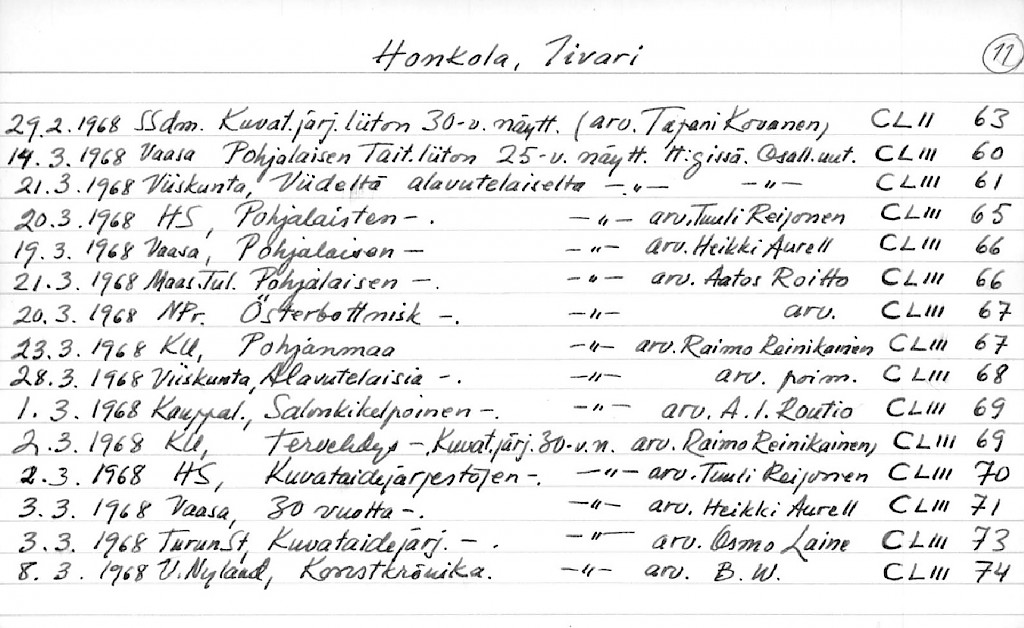 Honkola, Iivari 11
29.2.1968 SSdm. Kuvat.järj.liiton 30-v. näytt. (arv. Tapani Kovanen) CLII 63
14.3.1968 Vaasa Pohjalaisen Tait.liiton 25-v. näytt. H:gissä. Osall.uut. CLIII 60
21.3.1968 Viiskunta, Viideltä alavutelaiselta -"- -"- CLIII 61
20.3.1968 HS, Pohjalaisten -. -"- arv. Tuuli Reijonen CLIII 65
19.3.1968 Vaasa, Pohjalaisen - -"- arv. Heikki Aurell CLIII 66
21.3.1968 Maas.Tul. Pohjalaisen -. -"- arv. Aatos Roitto CLIII 66
20.3.1968 NPr. Österbottnisk -. -"- arv. CLIII 67
23.3.1968 KU, Pohjanmaa -"- arv. Raimo Reinikainen CLIII 67
28.3.1968 Viiskunta, Alavutelaisia -. -"- arv. poim. CLIII 68
1.3.1968 Kauppal., Salonkikelpoinen -. -"- arv. A.I. Routio CLIII 69
2.3.1968 KU, Tervehdys - Kuvat.järj.30-v.n. arv. Raimo Reinikainen) CLIII 69
2.3.1968 HS, Kuvataidejärjestöjen -. -"- arv. Tuuli Reijonen CLIII 70
3.3.1968 Vaasa, 30 vuotta -. -"- arv. Heikki Aurell CLIII 71
3.3.1968 TurunSt, Kuvataidejärj. -. -"- arv. Osmo Laine CLIII 73
8.3.1968 V.Nyland, Konstkrönika. -"- arv. B.W. CLIII 74